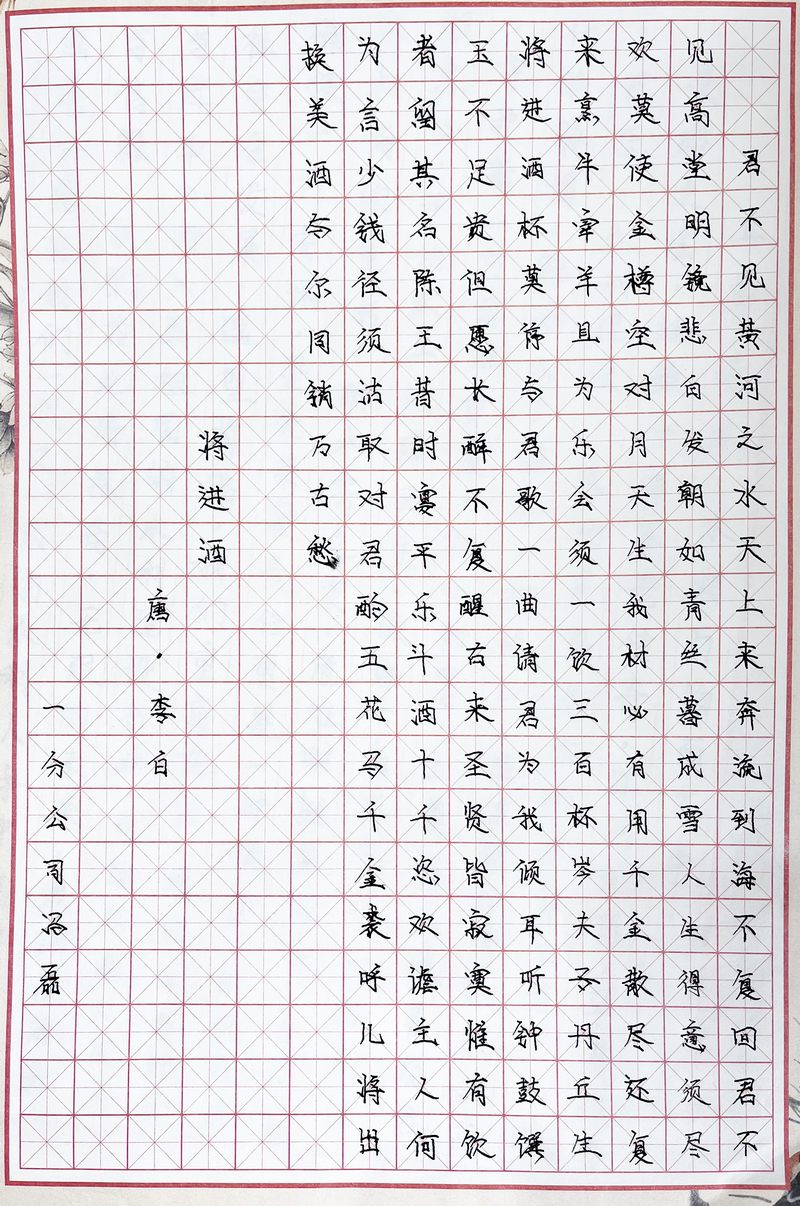 君不见黄河之水天上来奔流到海不复回君不
见高堂明镜悲白发朝如青丝暮成雪人生得意须尽
欢莫使金樽空对月天生我材必有用千金散尽还复
来烹牛宰羊且为乐会须一饮三百杯岑夫子丹丘生
将进酒杯莫停与君歌一曲请君为我倾耳听钟鼓馔
玉不足贵但愿长醉不复醒古来圣贤皆寂寞惟有饮
者留其名陈王昔时宴平乐斗酒十千恣欢谑主人何
为言少钱径须沽取对君酌五花马千金裘呼儿将出
换美酒与尔同销万古愁
将进酒
唐·李白
一分公司冯磊